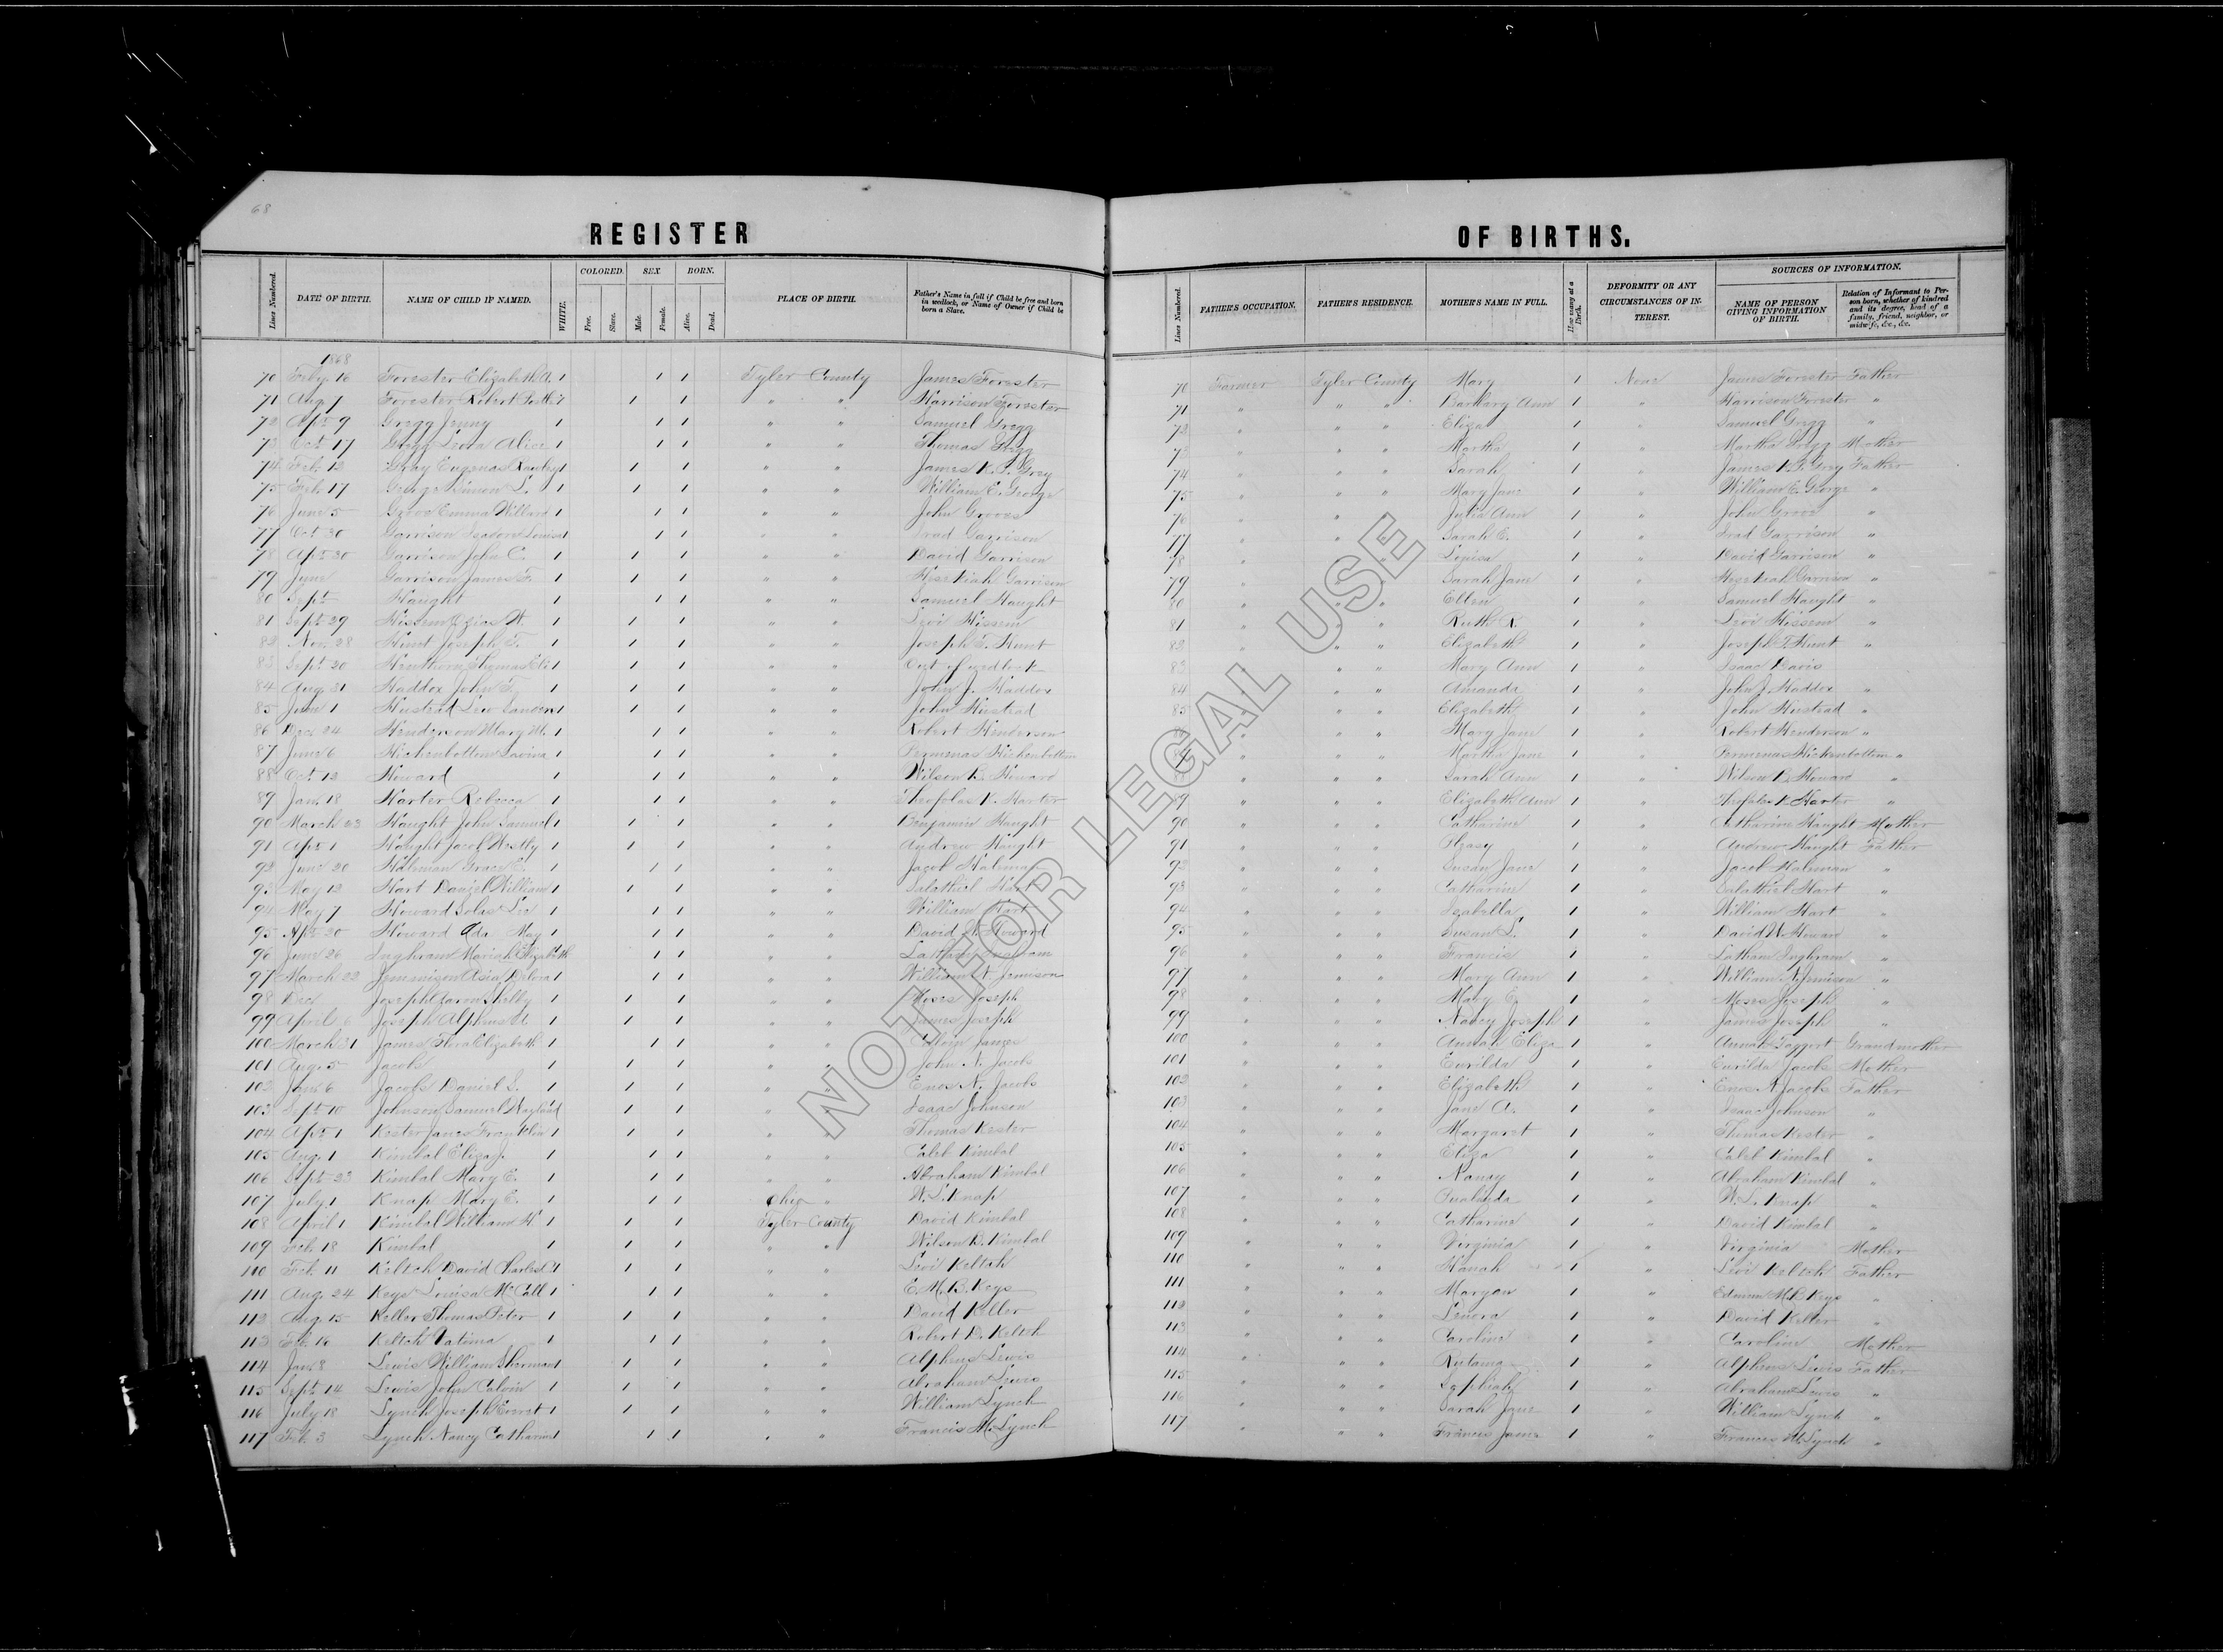 68
REGISTER OF BIRTHS.
Lines Numbered. DATE OF BIRTH. NAME OF CHILD IF NAMED. WHITE. COLORED. Free. Slave. SEX Male. Female. BORN. Alive. Dead. PLACE OF BIRTH. Father's Name in full if Child be free and born in wedlock, or Name of Owner if Child be born a Slave. Lines Numbered. FATHER'S OCCUPATION. FATHER'S RESIDENCE. MOTHER'S NAME IN FULL. How many at a Birth. DEFORMITY OR ANY CIRCUMSTANCES OF INTEREST. SOURCES OF INFORMATION. NAME OF PERSON GIVING INFORMATION OF BIRTH. Relation of Informant to Person born, whether of kindred and its degree, head of a family, friend, neighbor, or midwife, &c., &c.
1868
70 Feby. 16 Forester Elizabeth A. 1 1 1 Tyler County James Forester 70 Farmer Tyler County Mary 1 None James Forester Father
71 Aug 7 Forester Robert 1 1 1 " " Harrison Forester 71 " " " Barbary Ann 1 " Harrison Forester "
72 Apr. 9 Gregg Jenny 1 1 1 " " Samuel Gregg 72 " " " Eliza 1 " Samuel Gregg "
73 Oct. 17 Gregg Alice 1 1 1 " " Thomas Gregg 73 " " " Martha 1 " Martha Gregg Mother
74 Feb. 12 Gray Eugenas 1 1 1 " " James K. P. Gray 74 " " " Sarah 1 " James K. P. Gray Father
75 Feb. 17 George Simon L. 1 1 1 " " William E. George 75 " " " Mary Jane 1 " William E. George "
76 June 5 Emma Willard 1 1 1 " " John Groves 76 " " " Julia Ann 1 " John "
77 Oct. 30 Garrison Isadora Louisa 1 1 1 " " Irad Garrison 77 " " " Sarah E. 1 " Irad Garrison "
78 Apr. 30 Garrison John C. 1 1 1 " " David Garrison 78 " " " Louisa 1 " David Garrison "
79 June Garrison James F. 1 1 1 " " Hezekiah Garrison 79 " " " Sarah Jane 1 " Hezekiah Garrison "
80 Sept. Haught 1 1 1 " " Samuel Haught 80 " " " Ellen 1 " Samuel Haught "
81 Sept. 29 Hissem W. 1 1 1 " " Levi Hissem 81 " " " Ruth R. 1 " Levi Hissem "
82 Nov. 28 Hunt Joseph F. 1 1 1 " " Joseph F. Hunt 82 " " " Elizabeth 1 " Joseph F. Hunt "
83 Sept. 20 Henthorn Thomas Eli 1 1 1 " " Out of wedlock 83 " " " Mary Ann 1 " Isaac Davis
84 Aug. 31 Haddox John F. 1 1 1 " " John J. Haddox 84 " " " Amanda 1 " John J. Haddox "
85 June 1 Hustead 1 1 1 " " John Hustead 85 " " " Elizabeth 1 " John Hustead "
86 Dec. 24 Henderson Mary M. 1 1 1 " " Robert Henderson " " " Mary Jane 1 " Robert Henderson "
87 June 6 Hickenbottom Lavina 1 1 1 " " Permenas Hickenbottom " " " Martha Jane 1 " Permenas Hickenbottom "
88 Oct. 12 Howard 1 1 1 " " Wilson B. Howard " " " Sarah Ann 1 " Wilson B. Howard "
89 Jan. 18 Harter Rebecca 1 1 1 " " Theofolas K. Harter 89 " " " Elizabeth Ann 1 " K. Harter "
90 March 23 Haught John Samuel 1 1 1 " " Benjamin Haught 90 " " " Catharine 1 " Catharine Haught Mother
91 Apr. 1 Haught Jacob Westly 1 1 1 " " Andrew Haught 91 " " " Pleasy 1 " Andrew Haught Father
92 June 20 Grace E. 1 1 1 " " Jacob 92 " " " Susan Jane 1 " Jacob "
93 May 12 Hart Daniel William 1 1 1 " " Salathiel Hart 93 " " " Catharine 1 " Salathiel Hart "
94 May 7 Howard Solas Lee 1 1 1 " " William Hart 94 " " " Isabella 1 " William Hart "
95 Apr. 20 Howard Ada May 1 1 1 " " David W. Howard 95 " " " Susan L. 1 " David W. Howard "
96 June 26 Inghram Mariah Elizabeth 1 1 " " Latham Inghram 96 " " " Francis 1 " Latham Inghram "
97 March 22 Jemmison 1 1 1 " " William N. Jemison 97 " " " Mary Ann 1 " William N. Jemison "
98 Dec Joseph Aaron Shelby 1 1 1 " " Moses Joseph 98 " " " Mary E. 1 " Moses Joseph "
99 April 6 Joseph Alpheus 1 1 1 " " James Joseph 99 " " " Nancy Joseph 1 " James Joseph "
100 March 31 James Flora Elizabeth 1 1 1 " " Calvin James 100 " " " Annah Eliza 1 " Annah Taggert Grandmother
101 Aug. 5 Jacobs 1 1 1 " " John N. Jacobs 101 " " " Eurilda 1 " Eurilda Jacobs Mother
102 June 6 Jacobs Daniel S. 1 1 1 " " Enos N. Jacobs 102 " " " Elizabeth 1 " Enos N. Jacobs Father
103 Sept. 10 Johnson Samuel Wayland 1 1 " " Isaac Johnson 103 " " " Jane A. 1 " Isaac Johnson "
104 Apr. 1 Kester James Franklin 1 1 1 " " Thomas Kester 104 " " " Margaret 1 " Thomas Kester "
105 Aug. 1 Kimbal Eliza J. 1 1 1 " " Caleb Kimbal 105 " " " Eliza 1 " Caleb Kimbal "
106 Sept. 23 Kimbal Mary E. 1 1 1 " " Abraham Kimbal 106 " " " Nancy 1 " Abraham Kimbal "
107 July 1 Knap Mary E. 1 1 1 Ohio " W. L. Knap 107 " " " 1 " W. L. Knap "
108 April 1 Kimbal William H. 1 1 1 Tyler County David Kimbal 108 " " " Catharine 1 " David Kimbal "
109 Feb. 18 Kimbal 1 1 1 " " Wilson D. Kimbal 109 " " " Virginia 1 " Virginia Mother
110 Feb. 11 Keltch David Charles 1 1 1 " " Levi Keltch 110 " " " Hanah 1 " Levi Keltch Father
111 Aug. 24 Keys Louisa McCall 1 1 1 " " E. M. B. Keys 111 " " " Maryan 1 " Edwin M. B. Keys "
112 Aug. 15 Keller Thomas Peter 1 1 1 " " David Keller 112 " " " Lenora 1 " David Keller "
113 Feb. 16 Keltch 1 1 1 " " Robert D. Keltch 113 " " " Caroline 1 " Caroline Mother
114 Jan. 8 Lewis William Sherman 1 1 1 " " Alpheus Lewis 114 " " " 1 " Alpheus Lewis Father
115 Sept. 14 Lewis John Calvin 1 1 1 " " Abraham Lewis 115 " " " Sophiah 1 " Abraham Lewis "
116 July 18 Lynch Joseph Everet 1 1 1 " " William Lynch 116 " " " Sarah Jane 1 " William Lynch "
117 Feb. 3 Lynch Nancy Catharine 1 1 1 " " Francis M. Lynch 117 " " " Frances Jane 1 " Frances M. Lynch "
NOT FOR LEGAL USE